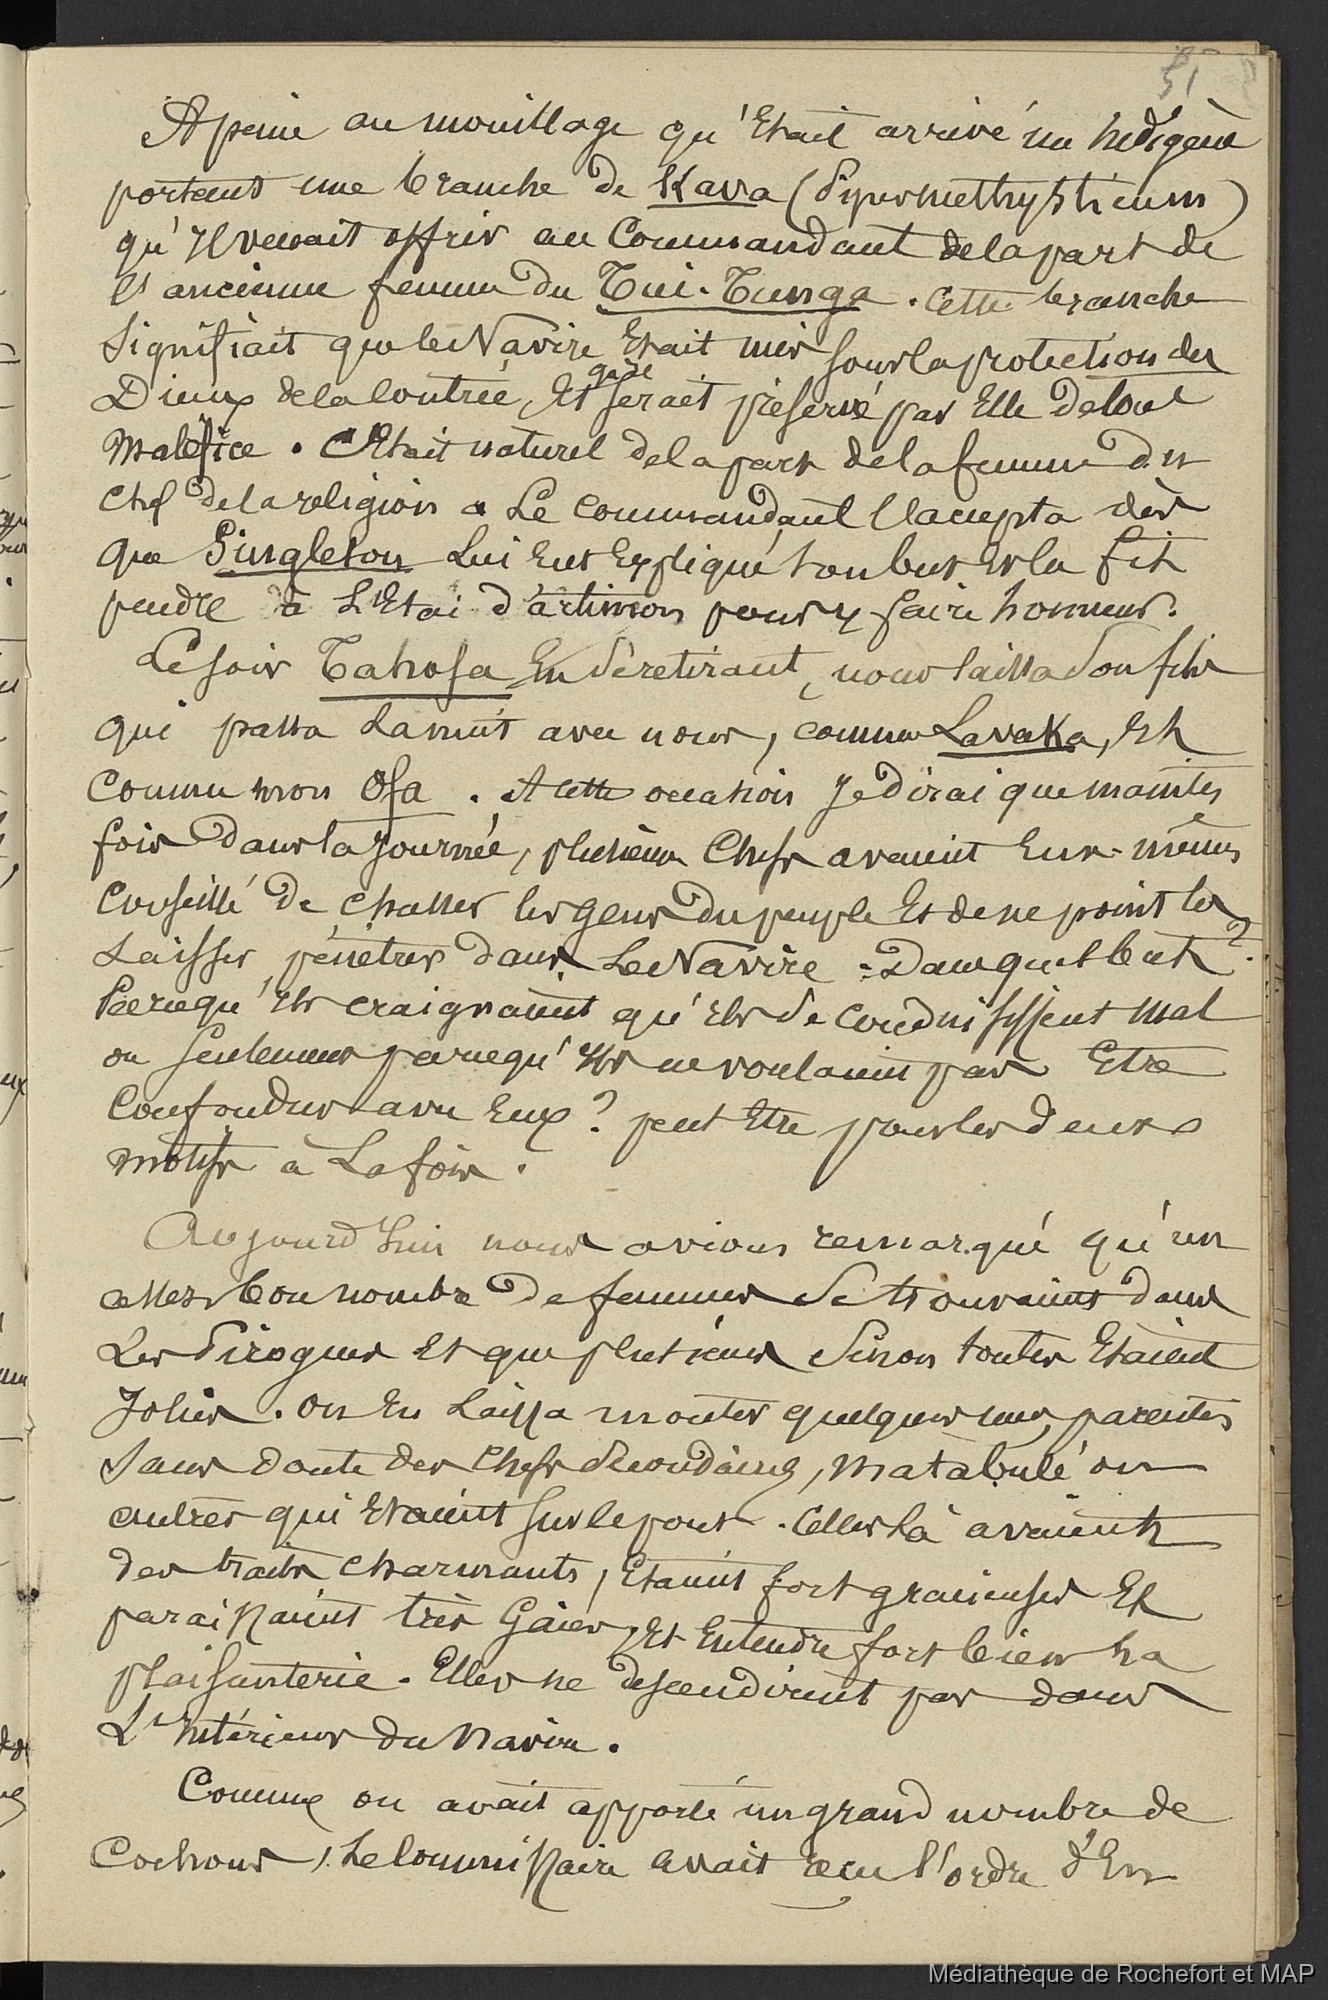 51
A peine au mouillage qu'Etait arrivé un Indigène
portant une branche de Kava (Pipermethysticum)
qu'Il venait offrir au Commandant de la part de
l'ancienne femme du Tui-Tunga. Cette branche
signifiait que le Navire Etait mis sous la protection des
Dieux de la Contrée, Et qu'il serait préservé par Elle de tout
Maléfice. C'Etait naturel de la part de la femme du
Chef de la religion. Le Commandant l'accepta dès
que Singleton lui Eut Expliqué son but Et la fit
pendre à L'Etai d'artimon pour y faire honneur.
Le soir Tahofa En se retirant, nous laissa son fils
qui passa La nuit avec nous, comme Lavaka, Et
Comme mon Ofa. A cette occasion Je dirai que maintes
fois dans la Journée, plusieurs Chefs avaient Eux-mêmes
Conseillé de chasser les gens du peuple Et de ne point les
Laisser pénétrer dans Le Navire - Dans quel but?
Parcequ'Ils craignaient qu'Ils se conduisissent mal
ou seulement parcequ'Ils ne voulaient pas Etre
Confondus avec Eux? peut Etre pour les deux
motifs à La fois.
Aujourd'hui nous avions remarqué qu'un
assez bon nombre de femmes se trouvaient dans
Les Pirogues Et que plusieurs sinon toutes Etaient
Jolies. On En Laissa monter quelques unes, parentes
sans doute des Chefs secondaires, Matabulé ou
autres qui Etaient sur le pont. Celles là avaient
des traits charmants, Etaient fort gracieuses Et
paraissaient très Gaies, Et Entendre fort bien La
plaisanterie. Elles ne descendirent pas dans
L'Intérieur du Navire.
Comme on avait apporté un grand nombre de
Cochons, Le Commissaire avait recu l'ordre d'En
Médiathèque de Rochefort et MAP